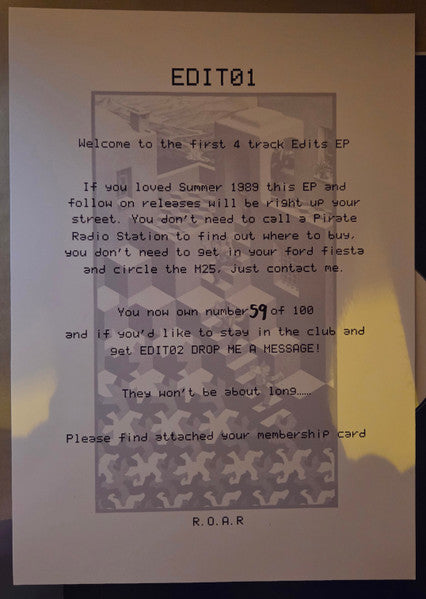 EDIT01
Welcome to the first 4 track Edits EP
If you loved Summer 1989 this EP and
follow on releases will be right up your
street. You don't need to call a Pirate
Radio Station to find out where to buy,
you don't need to get in your ford fiesta
and circle the M25, just contact me.
You now own number 59 of 100
and if you'd like to stay in the club and
get EDIT02 DROP ME A MESSAGE!
They won't be about long.....
Please find attached your membership card
R.O.A.R